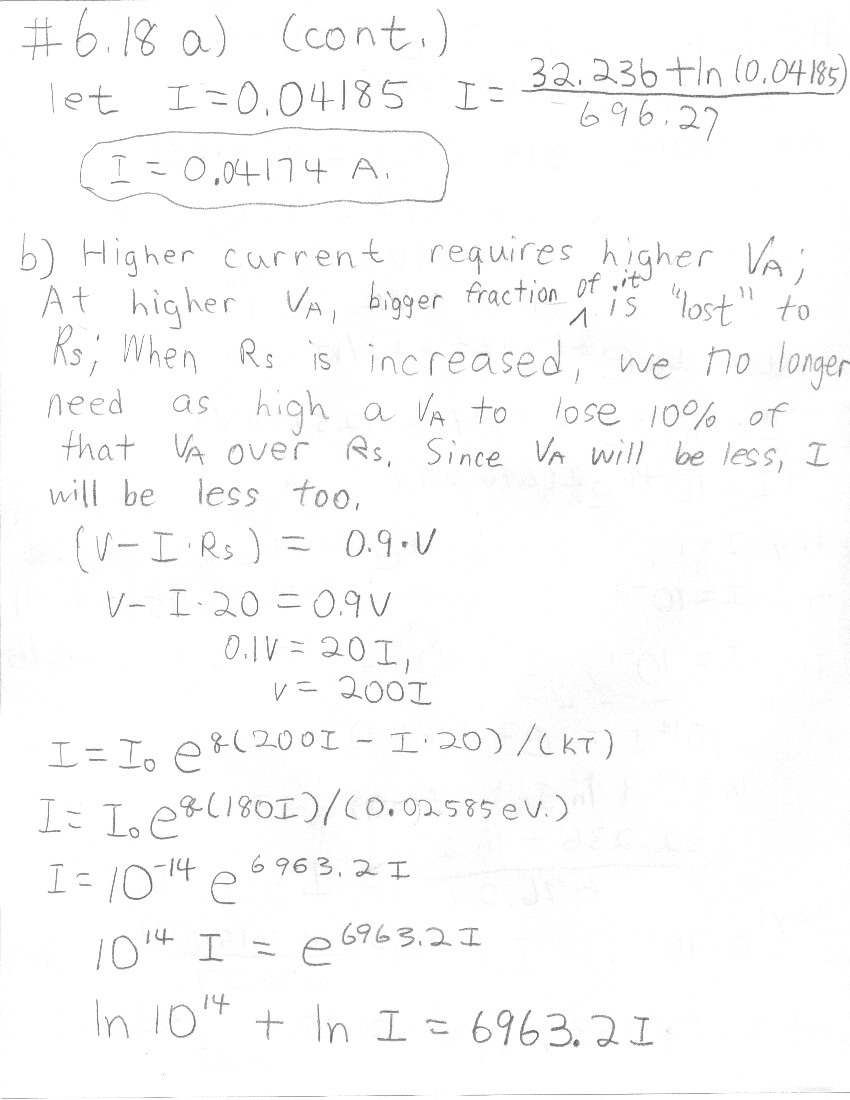 #6.18 a) (cont.)
let I=0.04185 I = 32.236 + ln (0.04185) / 696.27
I = 0.04174 A.
b) Higher current requires higher VA;
At higher VA, bigger fraction of it is "lost" to
Rs; When Rs is increased, we no longer
need as high a VA to lose 10% of
that VA over Rs. Since VA will be less, I
will be less too.
(V - I·Rs) = 0.9·V
V - I·20 = 0.9V
0.1V = 20I,
V = 200I
I = I₀ e^q(200I - I·20)/(KT)
I = I₀ e^q(180I)/(0.02585eV.)
I = 10^-14 e^6963.2I
10^14 I = e^6963.2I
ln 10^14 + ln I = 6963.2I